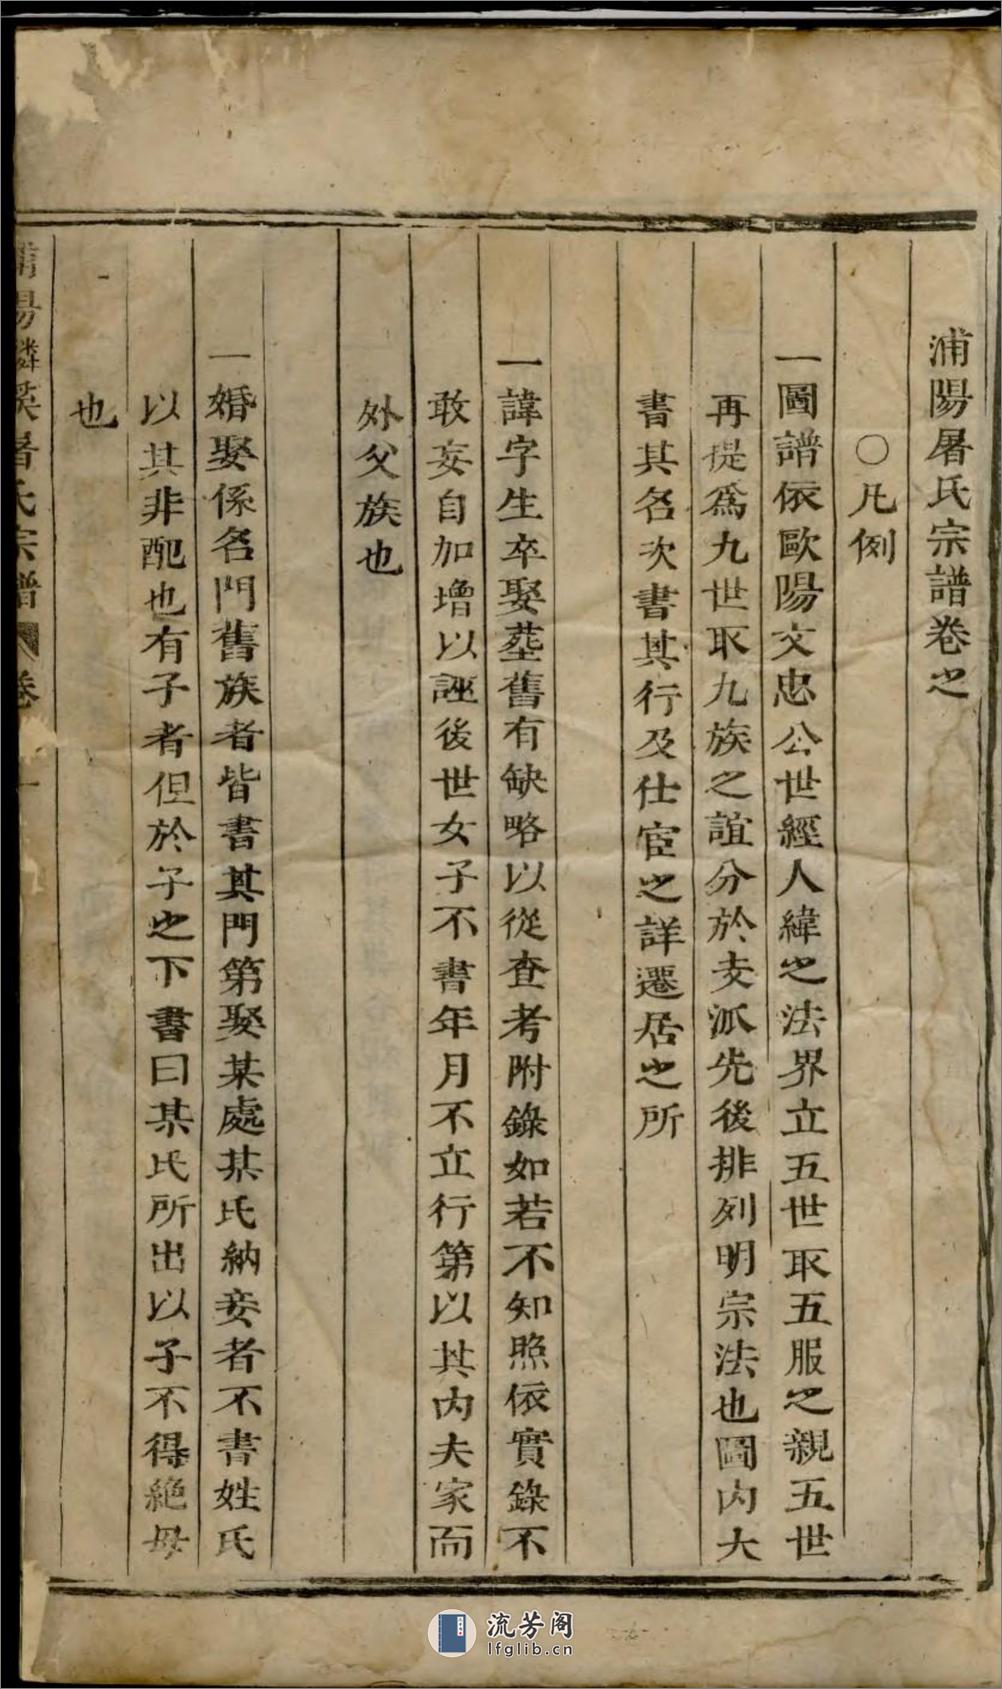 浦陽屠氏宗譜卷之
○凡例
一圖譜依歐陽文忠公世經人緯之法界立五世取五服之親五世
再提爲九世取九族之誼分於支派先後排列明宗法也圖内大
書其名次書其行及仕宦之詳遷居之所
一諱字生卒娶塟舊有缺略以從查考附錄如若不知照依實錄不
敢妄自加增以誣後世女子不書年月不立行第以其内夫家而
外父族也
一婚娶係名門舊族者皆書其門第娶某處某氏納妾者不書姓氏
以其非配也有子者但於子之下書曰某氏所出以子不得絶母
也
浦陽麟溪屠氏宗譜 卷
流芳阁
lfglib.cn